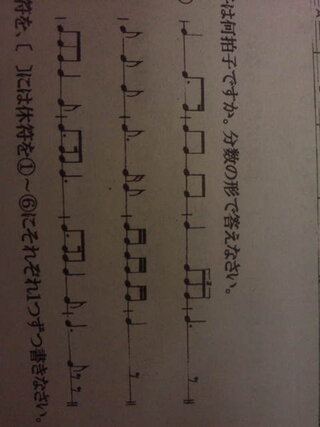 は何拍子ですか。分数の形で答えなさい。
符を、〔 〕には休符を①〜⑥にそれぞれ1つずつ書きなさい。